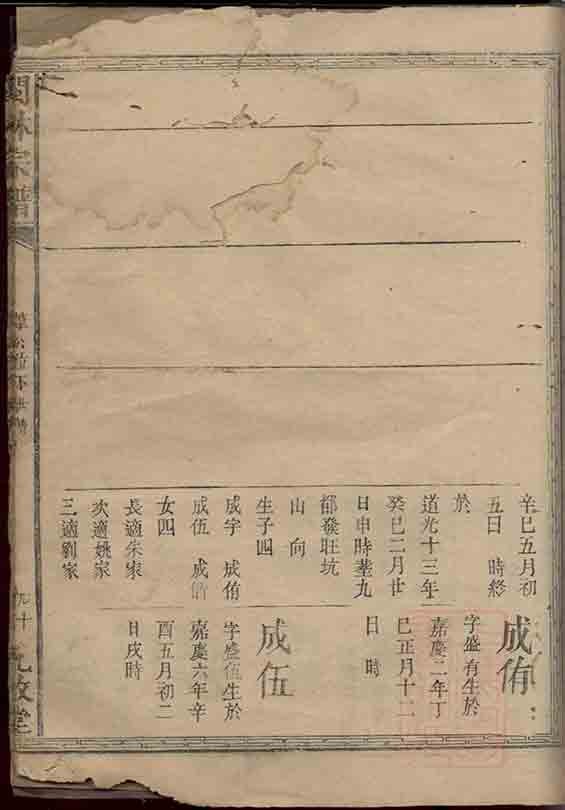 辛巳五月初
五日　時終
於
道光十三年
癸巳二月廿
日申時塟九
都發旺坑
山　向
生子四
成宇　成侑
成伍　成
女四
長適朱家
次適姚家
三適劉家
成侑
字盛有生於
嘉慶二年丁
巳正月十二
日　時
成伍
字盛伍生於
嘉慶六年辛
酉五月初二
日戌時
林宗譜
九十
敦堂